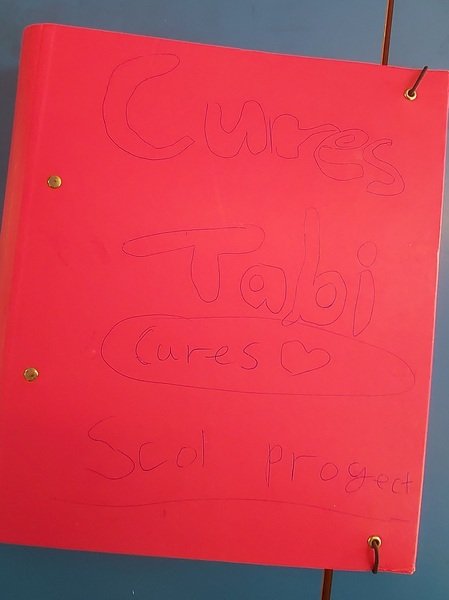 Cures
Tabi
Cures ♡
Scol progect